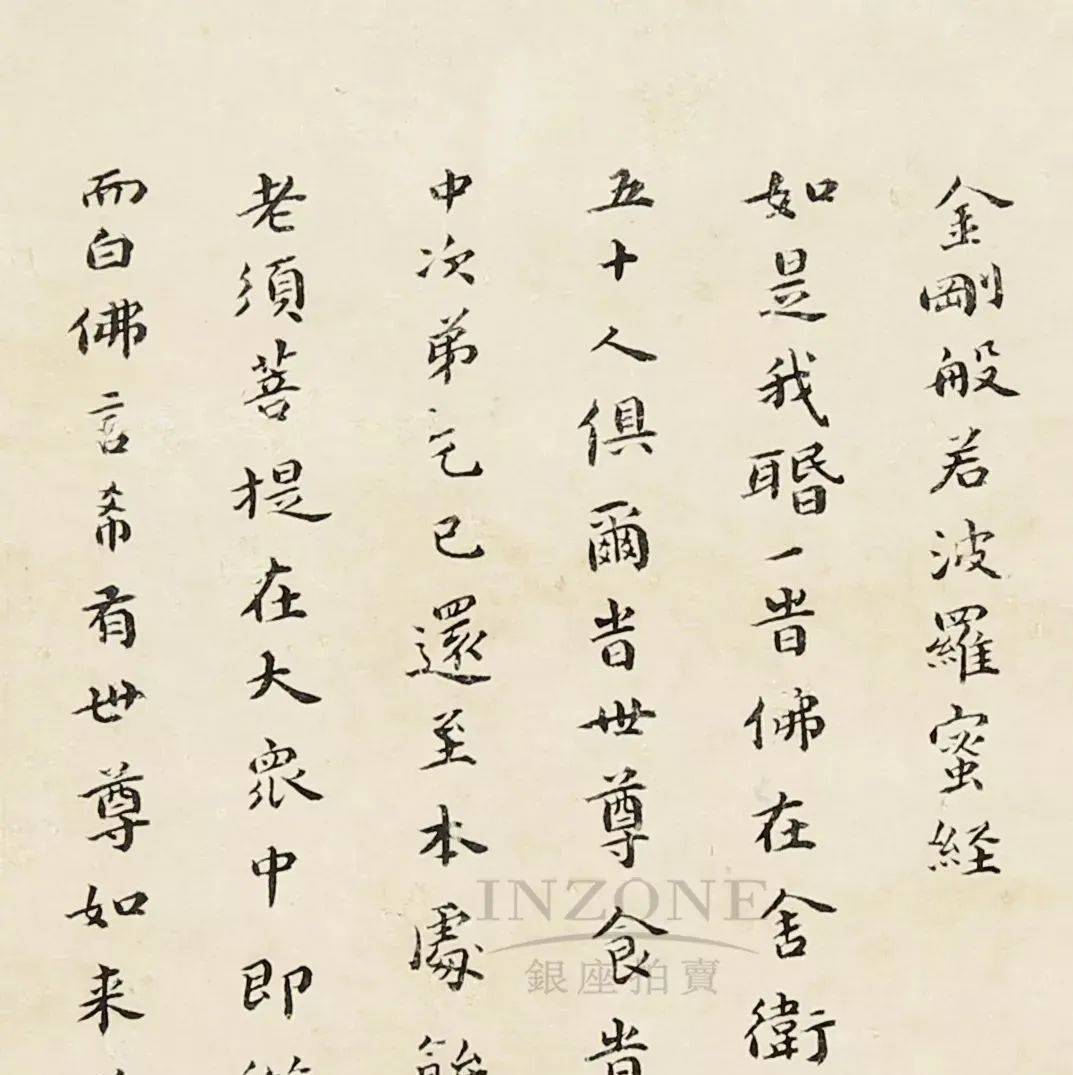 金剛般若波羅蜜経
如是我聞一旹佛在舍衛
五十人俱爾旹世尊食旹
中次弟乞已還至本處飯
老須菩提在大衆中即
而白佛言希有世尊如来
INZONE
銀座拍賣